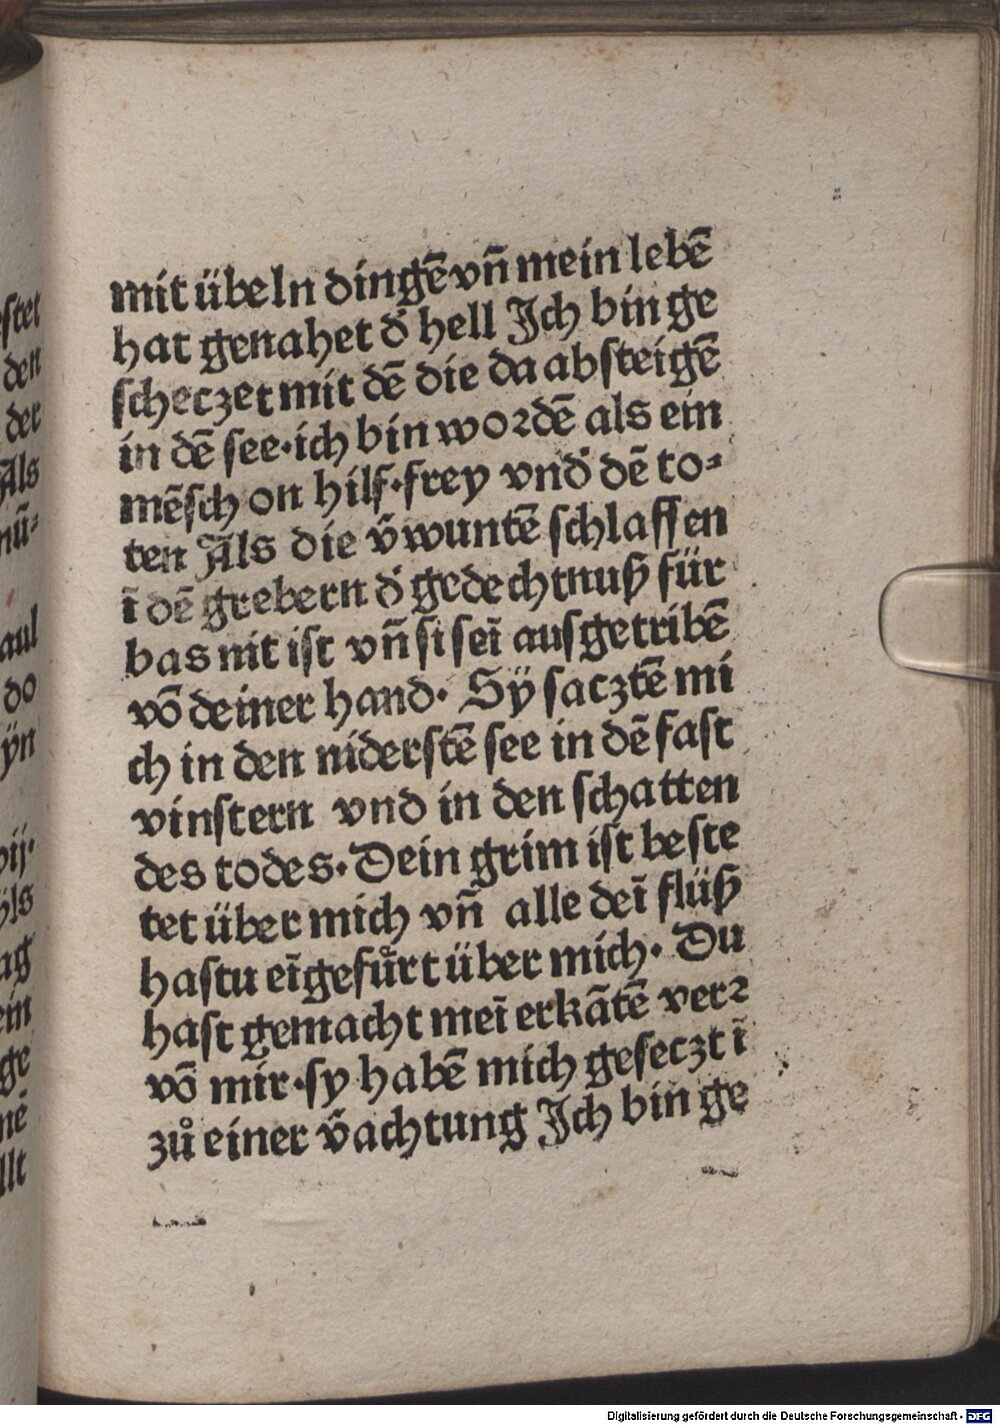 mit übeln dingē vñ mein lebē
hat genahet d' hell Ich bin ge
scheczet mit dē die da absteigē
in dē see·ich bin wordē als ein
mēsch on hilf·frey vnd' dē to⸗
ten Als die v̈wuntē schlaffen
ī dē grebern d' gedechtnuß für
bas nit ist vñ si seī ausgetribē
vō deiner hand· Sÿ sacztē mi
ch in den niderstē see in dē fast
vinstern vnd in den schatten
des todes·Dein grim ist beste
tet über mich vñ alle deī flüß
hastu eīgefůrt über mich· Du
hast gemacht meī erkātē verꝛ
vō mir·sy habē mich geseczt ī
zů einer v̈achtung Ich bin ge
stet
den
der
Als
nū⸗
aul
do
ÿn
ij·
ÿls
ag
ein
ge
nē
llt
Digitalisierung gefördert durch die Deutsche Forschungsgemeinschaft - DFG